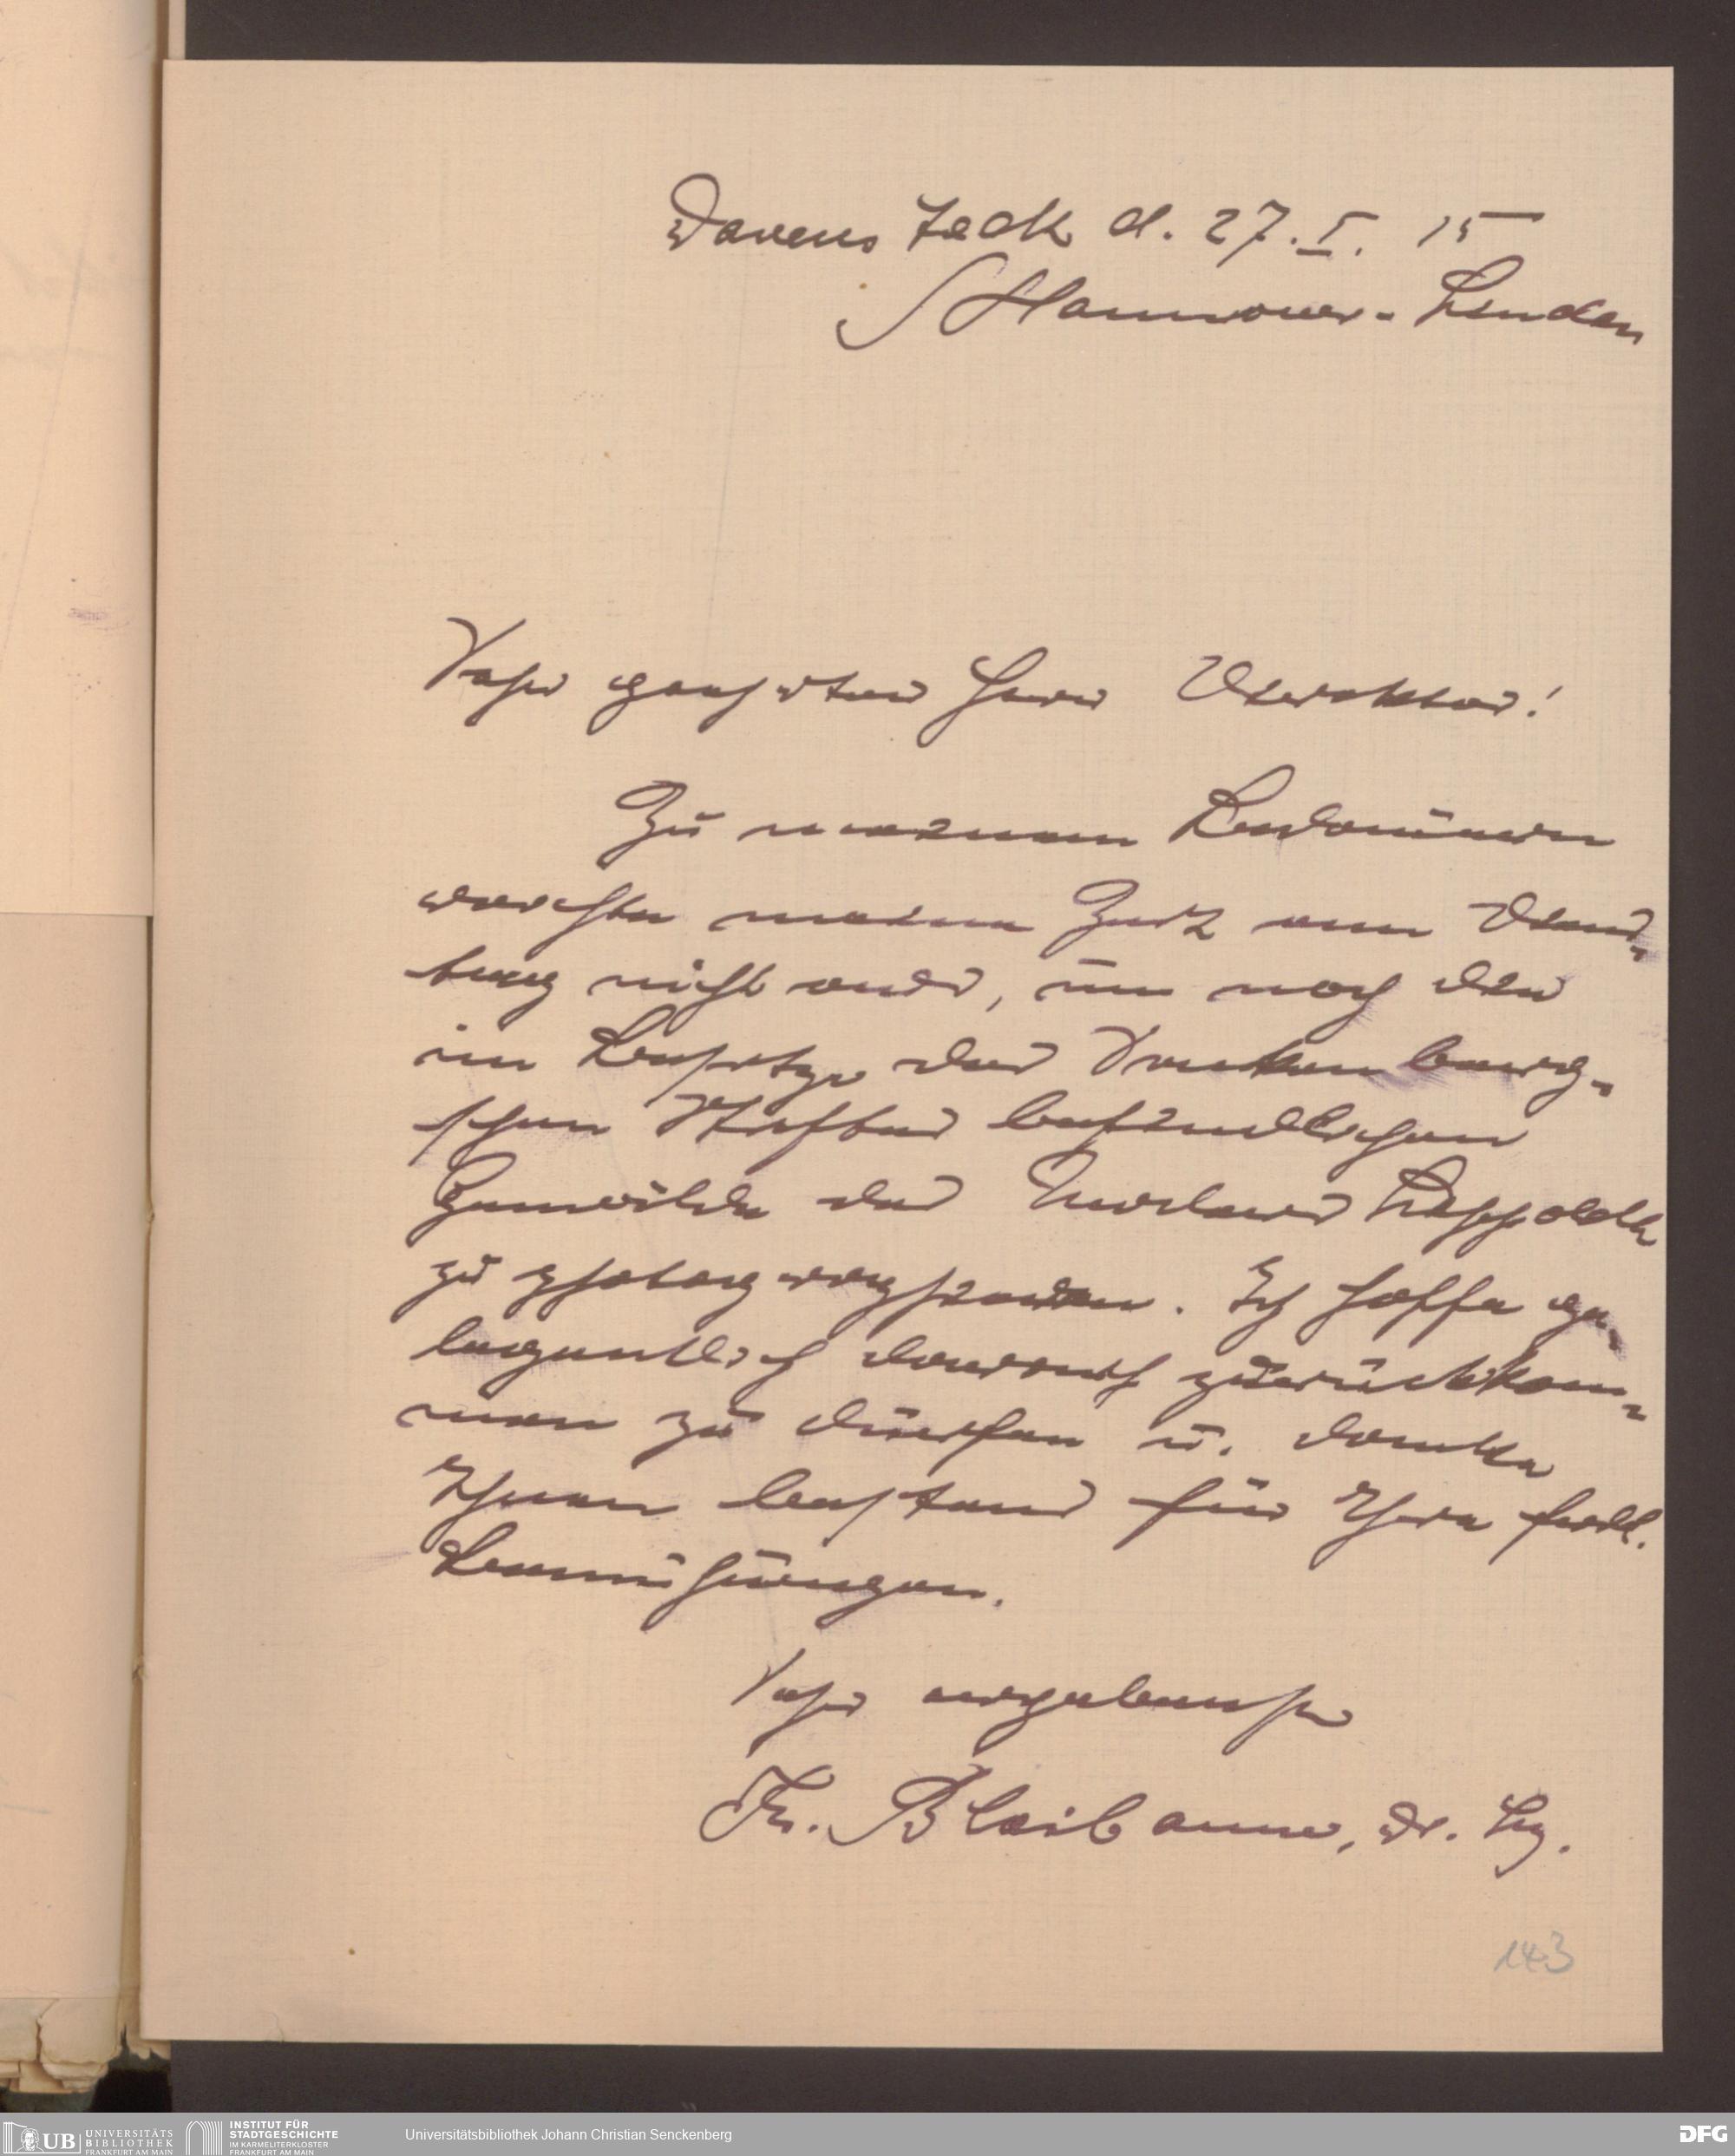 Davenstedt d. 27. I. 15
Hannover-Linden
Sehr geehrter Herr Direktor!
Zu meinem Bedauern
reichte meine Zeit am Diens-
tag nicht aus, um noch die
im Besitze der Senckenberg-
schen Stiftung befindlichen
Gemälde des Malers Lippoldt
zu photographieren. Ich hoffe ge-
legentlich darauf zurückkom-
men zu dürfen u. danke
Ihnen bestens für Ihre frdl.
Bemühungen.
Sehr ergebenst
Fr. Bleibaum, Dr. Ing.
143
UB
UNIVERSITÄTS
BIBLIOTHEK
FRANKFURT AM MAIN
INSTITUT FÜR
STADTGESCHICHTE
IM KARMELITERKLOSTER
FRANKFURT AM MAIN
Universitätsbibliothek Johann Christian Senckenberg
DFG